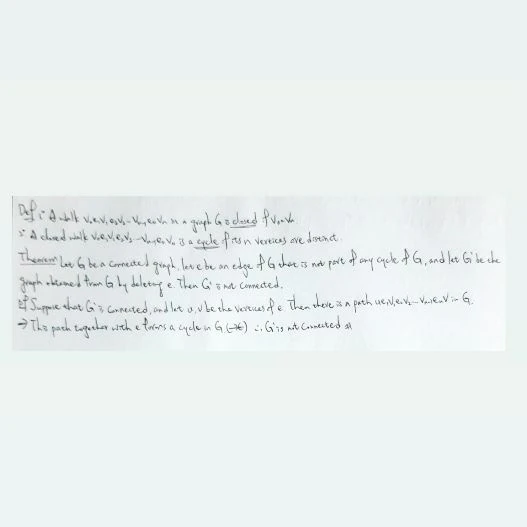 Def : A walk v₀e₁v₁e₂v₂-vₙ₋₁eₙvₙ in a graph G is closed if v₀=vₙ.
: A closed walk v₀e₁v₁e₂v₂...vₙ₋₁eₙvₙ is a cycle if its n vertices are distinct.
Theorem Let G be a connected graph, let e be an edge of G that is not part of any cycle of G, and let G' be the
graph obtained from G by deleting e. Then G' is not connected.
Pf Suppose that G' is connected, and let u, v be the vertices of e. Then there is a path ue₁v₁e₂v₂...vₙ₋₁eₙv in G.
→ This path together with e forms a cycle in G (→←) ∴ G' is not connected